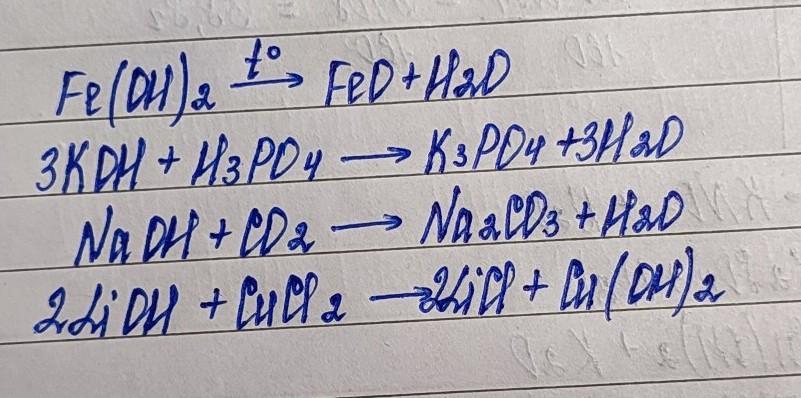 Fe(OH)₂ t° → FeO + H₂O
3KOH + H₃PO₄ → K₃PO₄ + 3H₂O
NaOH + CO₂ → Na₂CO₃ + H₂O
2LiOH + CuCl₂ → 2LiCl + Cu(OH)₂